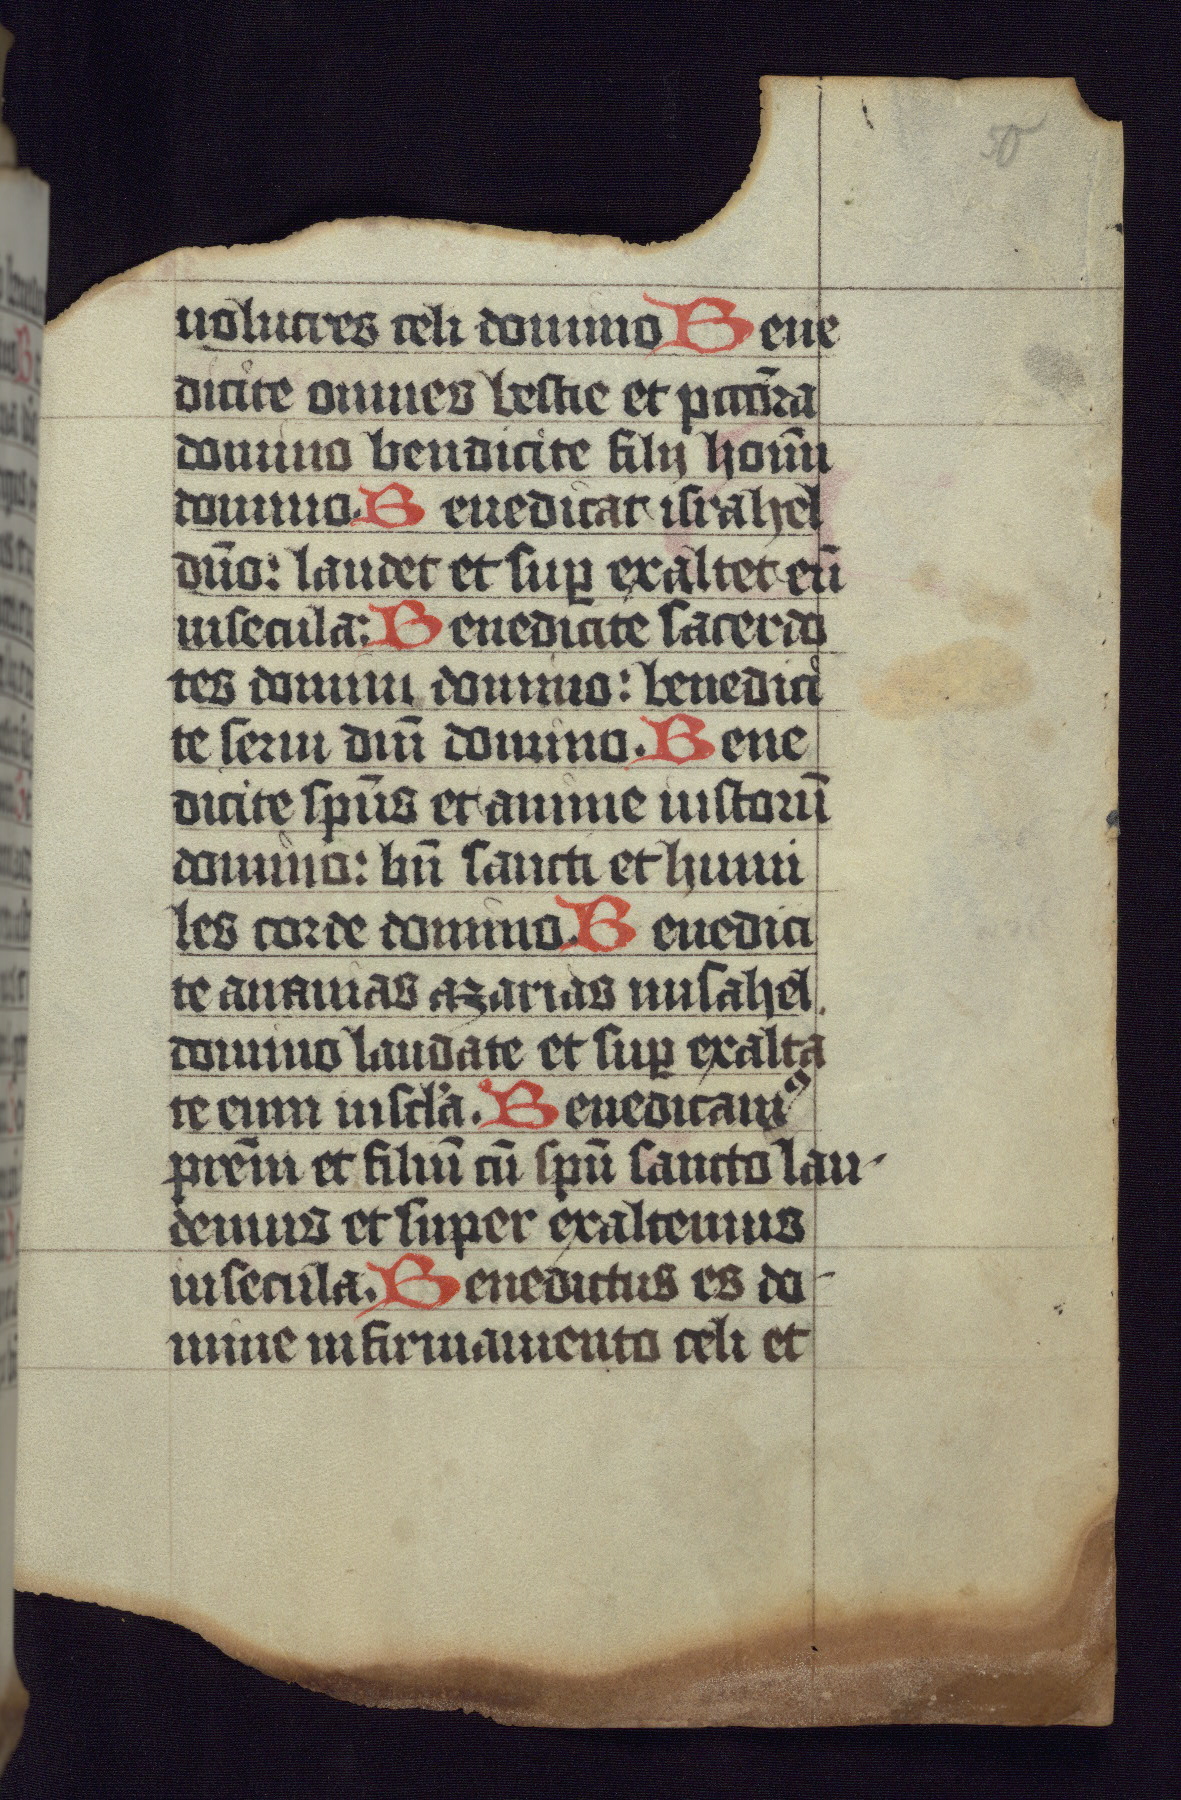 50
uolucres celi domino Bene
dicite omnes bestie et pecc̄ora
domino bendicite filij homī̄n
domino. Benedicat israhel
dn̄o: laudet et sup̱ exaltet eū
insecula: Benedicite sacerdo
tes domini domino: benedici
te serui dn̄i domino. Bene
dicite sp̄us et anime iustorū
domino: bn̄ sancti et humi
les corde domino. Benedici
te ananias azarias misahel.
domino laudate et sup̱ exalta
te eum inscl̄a. Benedicamꝰ
prēm et filiū cū spū sancto lau-
demus et super exaltemus
insecula. Benedictus es do-
mine in firmamento celi et